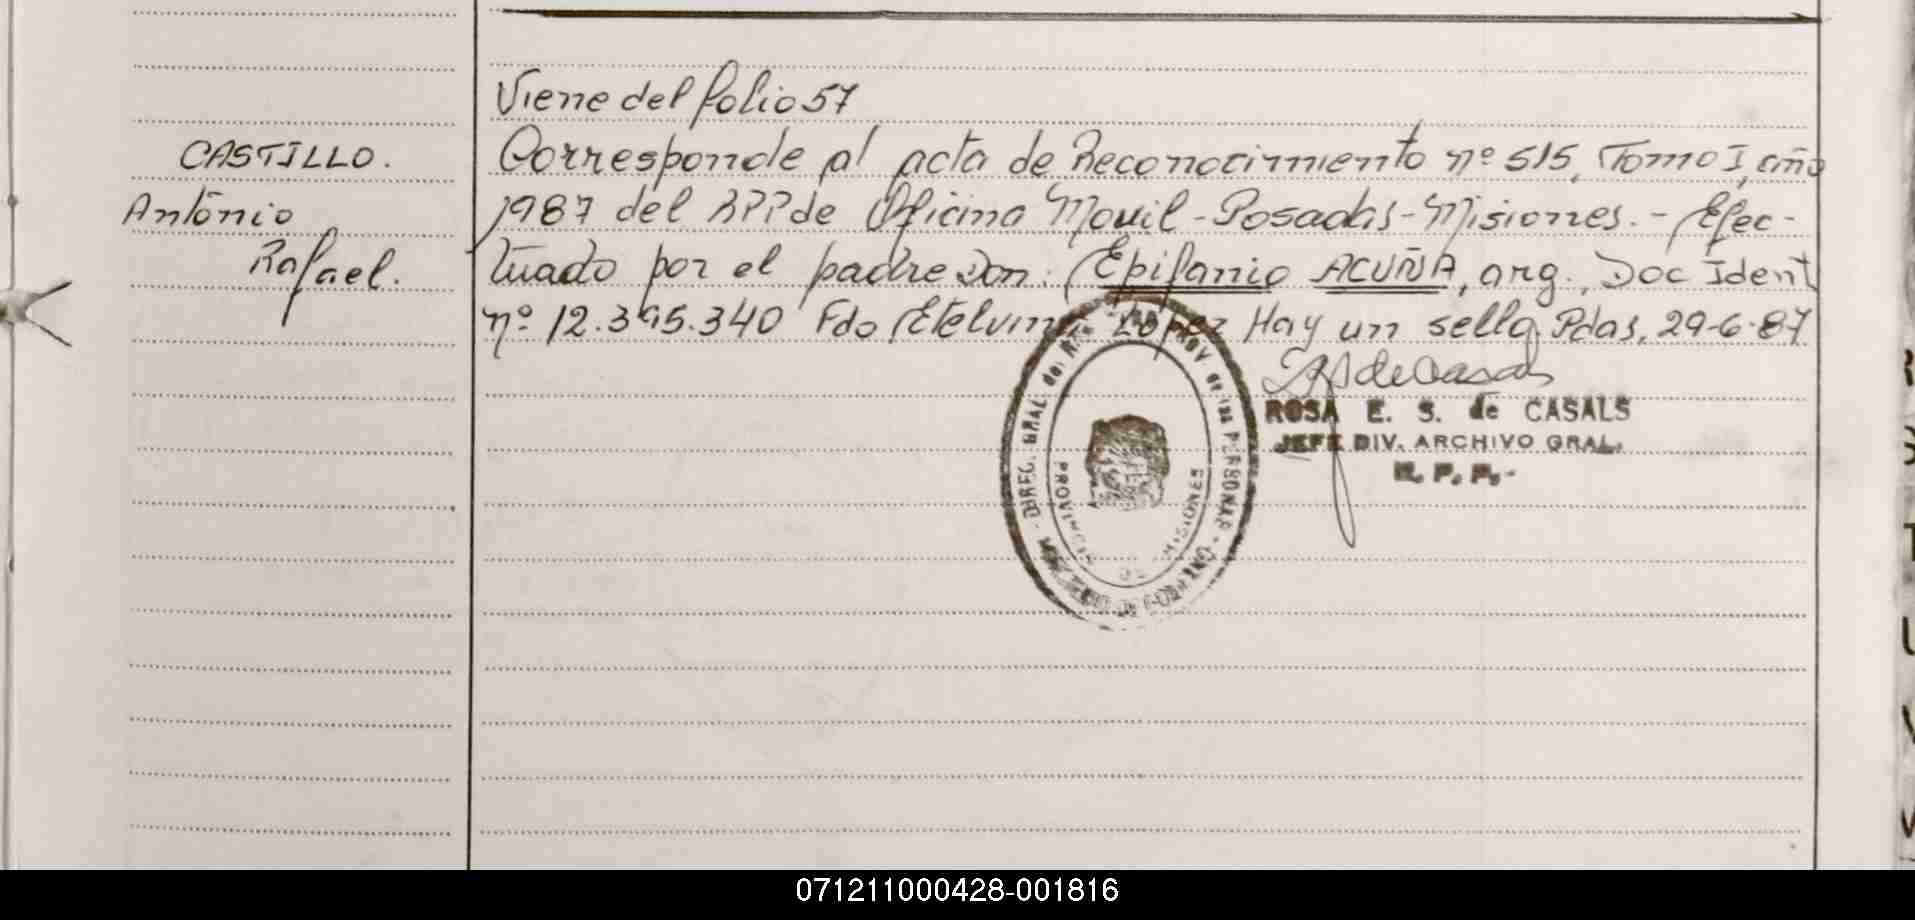 Viene del folio 57
CASTILLO.
Antonio
Rafael.
Corresponde al acta de Reconocimiento nº 515, Tomo I, año
1987 del RPP de Oficina Movil - Posadas - Misiones. - Efec-
tuado por el padre Don: Epifanio ACUÑA, arg., Doc Ident
nº 12.395.340 Fdo Etelvina Lopez Hay un sello. Pdas, 29-6-87
ROSA E. S. de CASALS
JEFE DIV. ARCHIVO GRAL.
R. P. P.-
DIREC. GRAL. del PROV. de las PERSONAS
PROVINCIA DE MISIONES
071211000428-001816